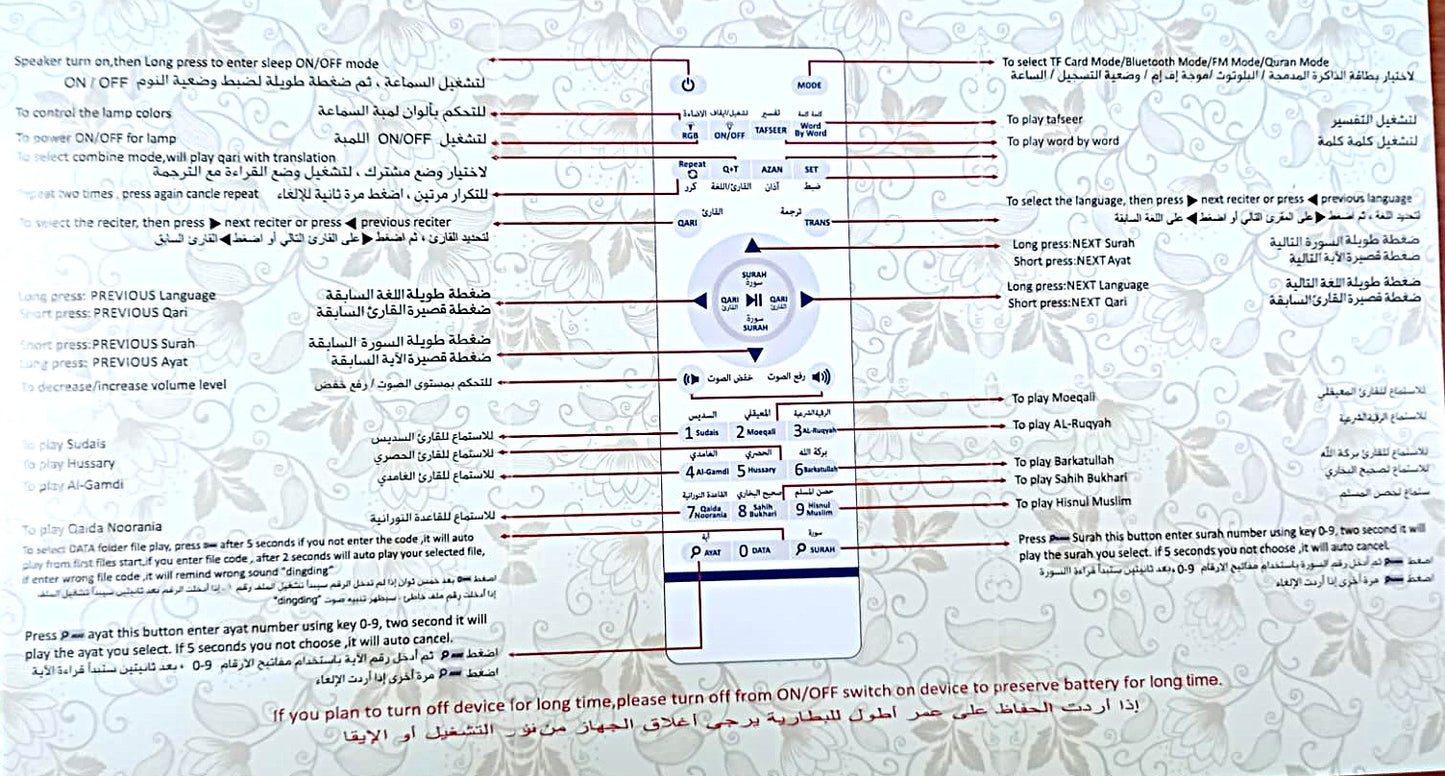 Speaker turn on,then Long press to enter sleep ON/OFF mode
لتشغيل السماعة ، ثم ضغطة طويلة لضبط وضعية النوم ON / OFF
To control the lamp colors
للتحكم بألوان لمبة السماعة
To power ON/OFF for lamp
لتشغيل ON/OFF اللمبة
To select combine mode,will play qari with translation
لاختيار وضع مشترك ، لتشغيل وضع القراءة مع الترجمة
Repeat two times , press again cancle repeat
للتكرار مرتين ، اضغط مرة ثانية للإلغاء
To select the reciter, then press ▶ next reciter or press ◀ previous reciter
لتحديد القارئ ، ثم اضغط ▶ على القارئ التالي أو اضغط ◀ القارئ السابق
Long press: PREVIOUS Language
ضغطة طويلة اللغة السابقة
Short press: PREVIOUS Qari
ضغطة قصيرة القارئ السابقة
Short press:PREVIOUS Surah
ضغطة طويلة السورة السابقة
Long press: PREVIOUS Ayat
ضغطة قصيرة الآية السابقة
To decrease/increase volume level
للتحكم بمستوى الصوت / رفع خفض
To play Sudais
للاستماع للقارئ السديس
To play Hussary
للاستماع للقارئ الحصري
To play Al-Gamdi
للاستماع للقارئ الغامدي
To play Qaida Noorania
للاستماع للقاعدة النورانية
To select DATA folder file play, press after 5 seconds if you not enter the code ,it will auto
play from first files start,if you enter file code , after 2 seconds will auto play your selected file,
if enter wrong file code ,it will remind wrong sound "dingding"
إذا أدخلت رقم ملف خاطئ ، سيظهر تنبيه صوت "dingding"
Press ayat this button enter ayat number using key 0-9, two second it will
play the ayat you select. If 5 seconds you not choose ,it will auto cancel.
اضغط ثم أدخل رقم الآية باستخدام مفاتيح الأرقام 0-9 ، بعد ثانيتين ستبدأ قراءة الآية
اضغط مرة أخرى إذا أردت الإلغاء
MODE
الاضاءة
تشغيل/ايقاف
تفسير
كلمة كلمة
RGB
ON/OFF
TAFSEER
Word By Word
Repeat
Q+T
AZAN
SET
كرر
القارئ/اللغة
آذان
ضبط
القارئ
ترجمة
QARI
TRANS
SURAH
سورة
QARI
القارئ
QARI
القارئ
سورة
SURAH
خفض الصوت
رفع الصوت
السديس
المعيقلي
الرقية الشرعية
1 Sudais
2 Moeqali
3 AL-Ruqyah
الغامدي
الحصري
بركة الله
4 Al-Gamdi
5 Hussary
6 Barkatullah
القاعدة النورانية
صحيح البخاري
حصن المسلم
7 Qaida Noorania
8 Sahih Bukhari
9 Hisnul Muslim
آية
سورة
AYAT
0 DATA
SURAH
To select TF Card Mode/Bluetooth Mode/FM Mode/Quran Mode
لاختيار بطاقة الذاكرة المدمجة / البلوتوث /موجة إف إم / وضعية التسجيل / الساعة
To play tafseer
لتشغيل التفسير
To play word by word
لتشغيل كلمة كلمة
To select the language, then press ▶ next reciter or press ◀ previous language
لتحديد اللغة ، ثم اضغط ▶ على المقرئ التالي أو اضغط ◀ على اللغة السابقة
Long press:NEXT Surah
ضغطة طويلة السورة التالية
Short press:NEXT Ayat
ضغطة قصيرة الآية التالية
Long press:NEXT Language
ضغطة طويلة اللغة التالية
Short press:NEXT Qari
ضغطة قصيرة القارئ السابقة
To play Moeqali
للاستماع للقارئ المعيقلي
To play AL-Ruqyah
للاستماع الرقية الشرعية
To play Barkatullah
للاستماع للقارئ بركة الله
To play Sahih Bukhari
للاستماع لصحيح البخاري
To play Hisnul Muslim
ستماع لحصن المسلم
Press Surah this button enter surah number using key 0-9, two second it will
play the surah you select. if 5 seconds you not choose ,it will auto cancel.
اضغط ثم أدخل رقم السورة باستخدام مفاتيح الأرقام 0-9 ،بعد ثانيتين ستبدأ قراءة السورة
اضغط مرة أخرى إذا أردت الإلغاء
If you plan to turn off device for long time,please turn off from ON/OFF switch on device to preserve battery for long time.
إذا أردت الحفاظ على عمر أطول للبطارية يرجى أغلاق الجهاز من نور التشغيل أو الإيقا